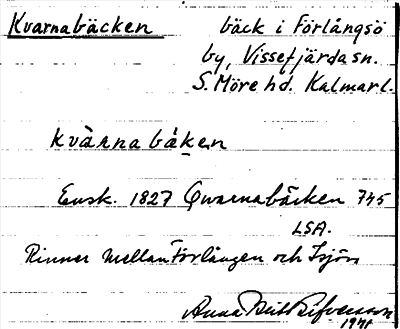 Kvarnabäcken bäck i Förlångsö
by, Vissefjärda sn.
S. Möre hd. Kalmarl.
kvàrnabäken
Ensk. 1827 Qwarnabäcken 745
LSA.
Rinner mellan Förlången och
Anna Britt
1971